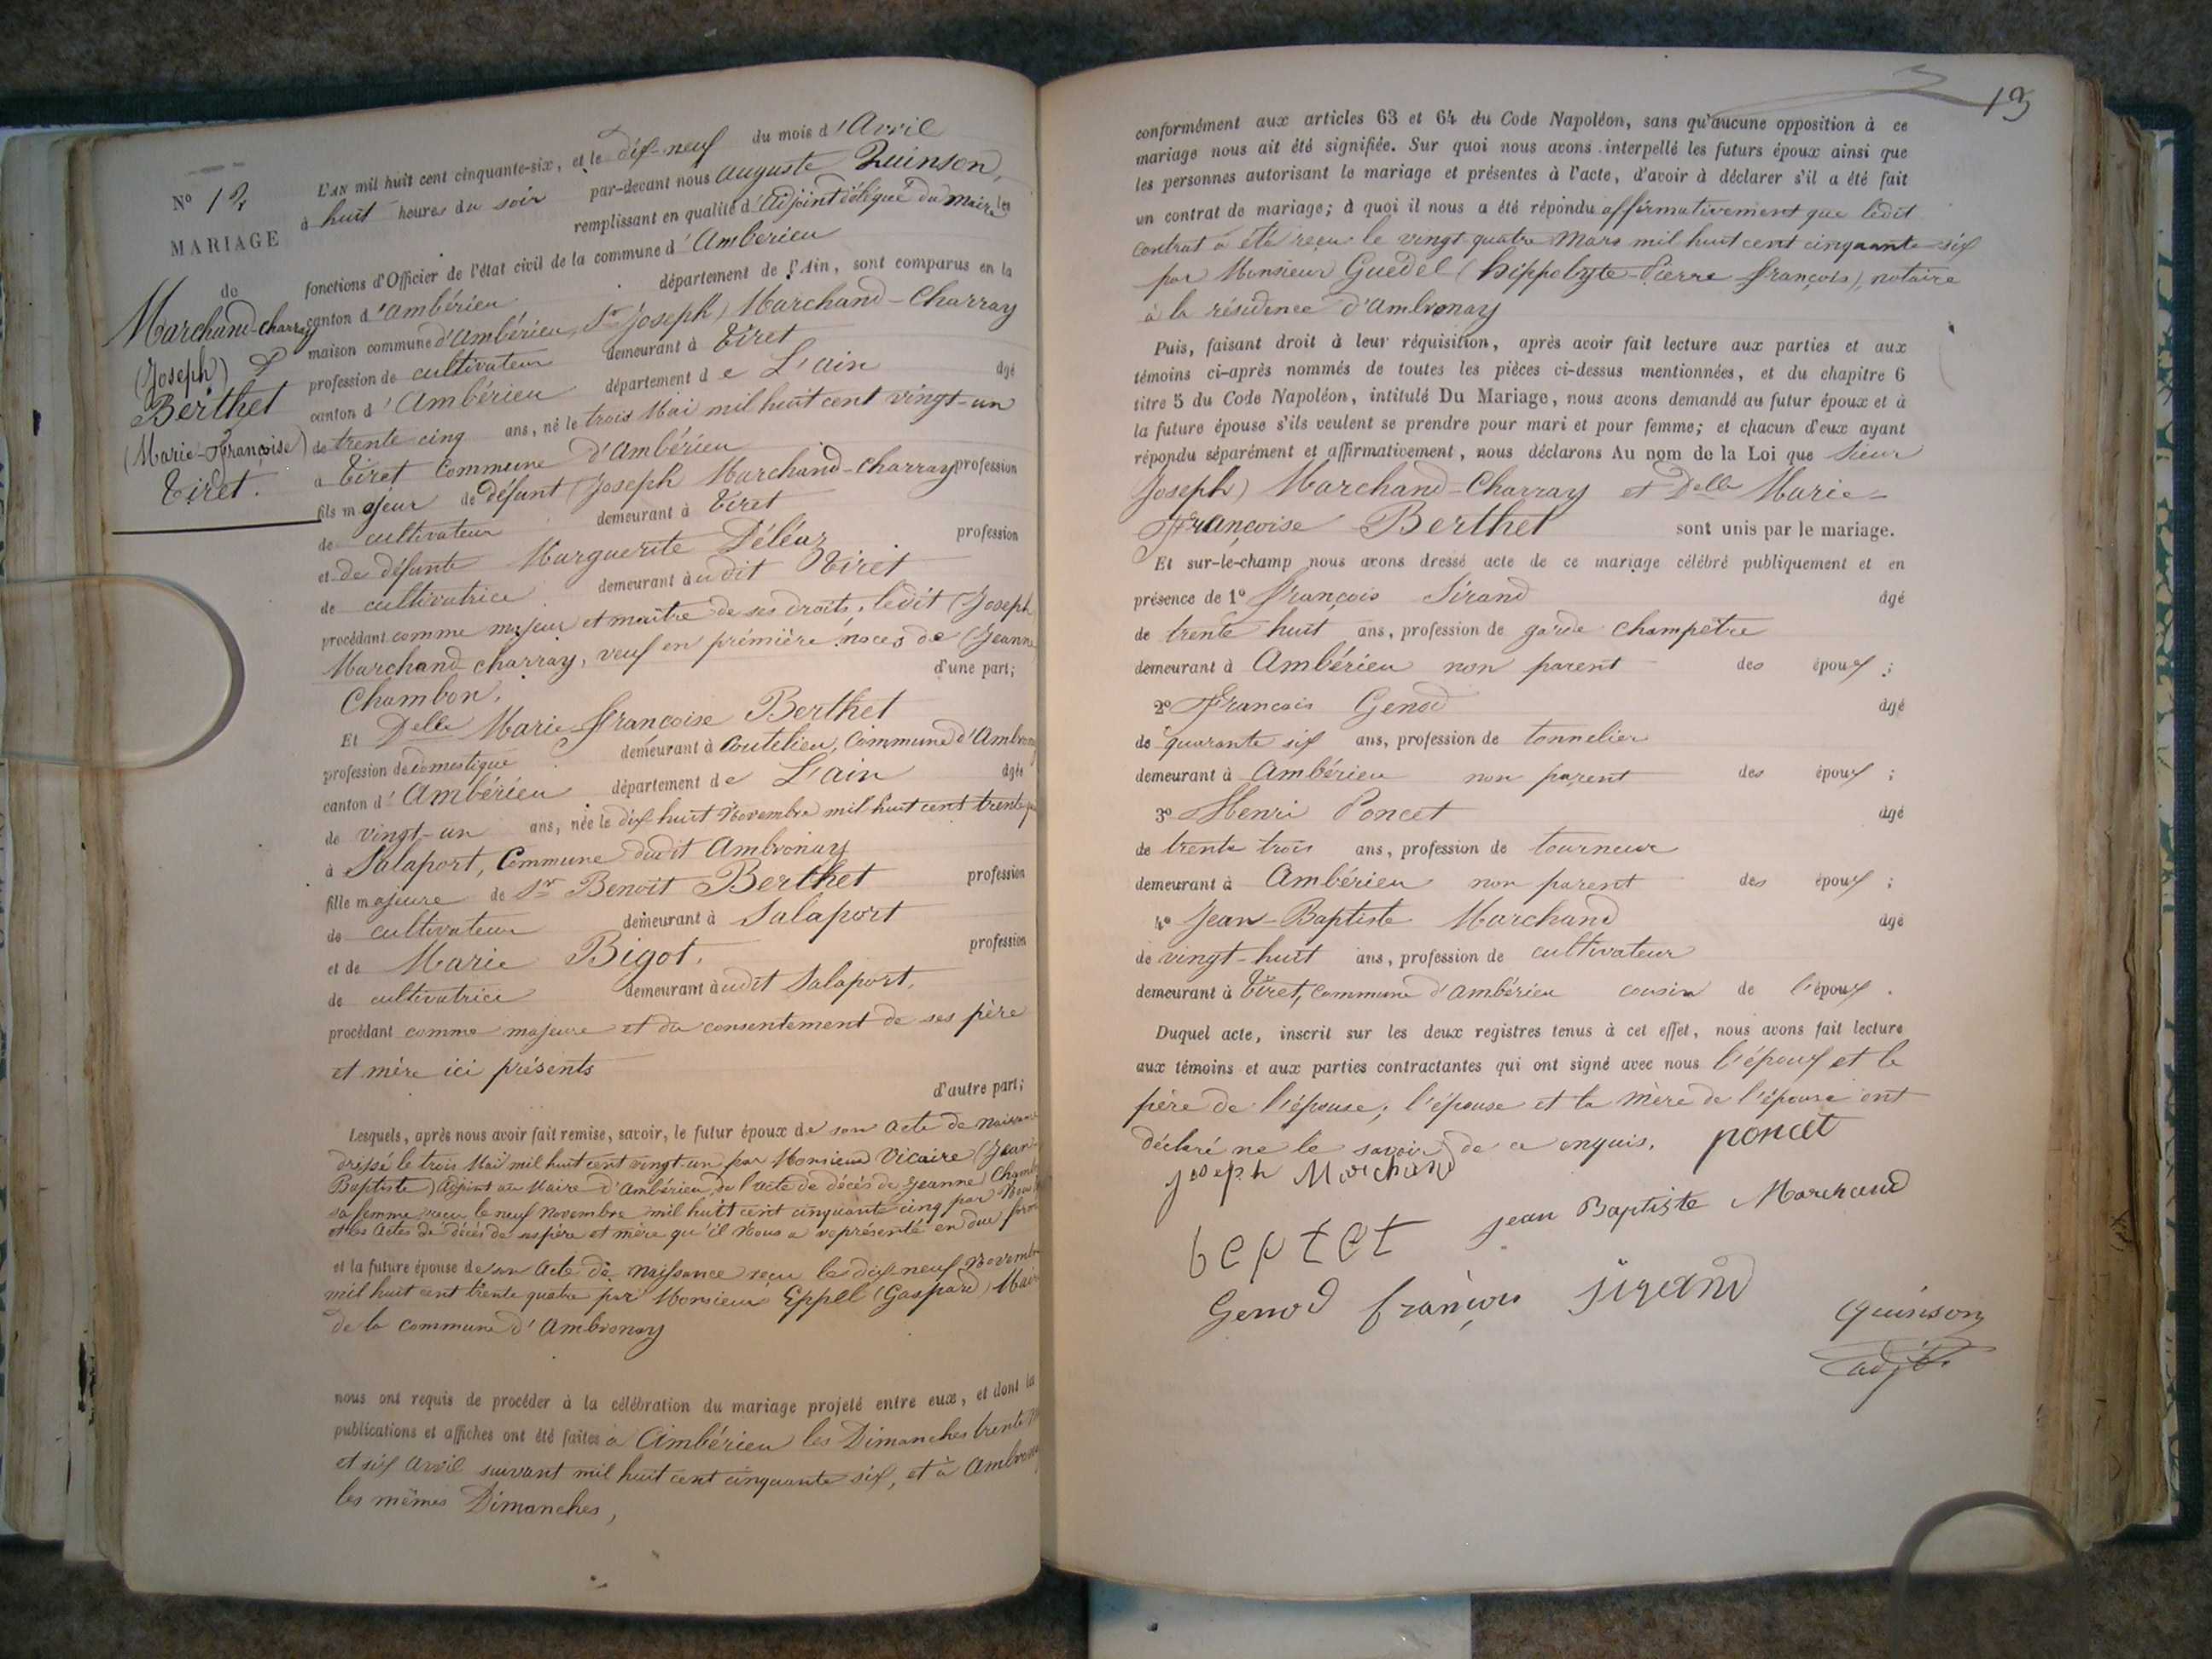 N° 12
MARIAGE
de
Marchand-charray
(Joseph) &
Berthet
(Marie-Françoise)
Tiret.
L'AN mil huit cent cinquante-six, et le dix-neuf du mois d'Avril
à huit heures du soir par-devant nous Auguste Quinson,
remplissant en qualité d'adjoint délégué du maire les
fonctions d'Officier de l'état civil de la commune d'Ambérieu
canton d'Ambérieu département de l'Ain, sont comparus en la
maison commune d'Ambérieu, Sr Joseph) Marchand-Charray
profession de cultivateur demeurant à Tiret
canton d'Ambérieu département de L'ain âgé
de trente cinq ans, né le trois Mai mil huit cent vingt-un
à Tiret Commune d'Ambérieu
fils majeur de Défunt (Joseph Marchand-charray profession
de cultivateur demeurant à Tiret
et de défunte Marguerite Déléaz profession
de cultivatrice demeurant àudit Tiret
procédant comme majeur et maître de ses droits, ledit (Joseph
Marchand-charray, veuf en prémière noces de (Jeanne
Chambon. d'une part;
Et Delle Marie-françoise Berthet
profession de domestique demeurant à Coutelieu, Commune d'Ambronay
canton d'Ambérieu département de L'ain âgée
de vingt-un ans, née le dix huit Novembre mil huit cent trente
à Salaport, Commune dudit Ambronay
fille majeure de Sr Benoit Berthet profession
de cultivateur demeurant à Salaport
et de Marie Bigot. profession
de cultivatrice demeurant àudit Salaport,
procédant comme majeure et du consentement de ses père
et mère ici présents
d'autre part;
Lesquels, après nous avoir fait remise, savoir, le futur époux de son acte de naissance
dressé le trois Mai mil huit cent vingt-un par Monsieur Vicaire (Jean
Baptiste) Adjoint au Maire d'Ambérieu, de l'acte de décès de Jeanne Chambon
sa femme reçu le neuf Novembre mil huit cent cinquante cinq par Nous
et les Actes de décès de ses père et mère qu'il Nous a représenté en due forme
et la future épouse de son Acte de Naissance reçu le dix-neuf Novembre
mil huit cent trente quatre par Monsieur Eppel (Gaspard) Maire
de la commune d'Ambronay
nous ont requis de procéder à la célébration du mariage projeté entre eux, et dont la
publications et affiches ont été faites à Ambérieu les Dimanches trente
et six Avril suivant mil huit cent cinquante six, et à Ambronay
les mêmes Dimanches,
13
conformément aux articles 63 et 64 du Code Napoléon, sans qu'aucune opposition à ce
mariage nous ait été signifiée. Sur quoi nous avons interpellé les futurs époux ainsi que
les personnes autorisant le mariage et présentes à l'acte, d'avoir à déclarer s'il a été fait
un contrat de mariage; à quoi il nous a été répondu affirmativement que ledit
contrat a été reçu le vingt quatre Mars mil huit cent cinquante-six
par Monsieur Guedel (hippolyte-Pierre-françois), notaire
à la résidence d'Ambronay
Puis, faisant droit à leur réquisition, après avoir fait lecture aux parties et aux
témoins ci-après nommés de toutes les pièces ci-dessus mentionnées, et du chapitre 6
titre 5 du Code Napoléon, intitulé Du Mariage, nous avons demandé au futur époux et à
la future épouse s'ils veulent se prendre pour mari et pour femme; et chacun d'eux ayant
répondu séparément et affirmativement, nous déclarons Au nom de la Loi que Sieur
Joseph) Marchand-Charray et Delle Marie-
Françoise Berthet sont unis par le mariage.
Et sur-le-champ nous avons dressé acte de ce mariage célébré publiquement et en
présence de 1° françois Sirand âgé
de trente huit ans, profession de garde champêtre
demeurant à Ambérieu non parent des époux ;
2° François Genod âgé
de quarante six ans, profession de tonnelier
demeurant à Ambérieu non parent des époux ;
3° Henri Poncet âgé
de trente trois ans, profession de tourneur
demeurant à Ambérieu non parent des époux ;
4° Jean-Baptiste Marchand âgé
de vingt-huit ans, profession de cultivateur
demeurant à Tiret, commune d'Ambérieu cousin de l'époux .
Duquel acte, inscrit sur les deux registres tenus à cet effet, nous avons fait lecture
aux témoins et aux parties contractantes qui ont signé avec nous l'époux et le
père de l'épouse; l'épouse et la mère de l'épouse ont
déclaré ne le savoir de ce enquis. poncet
joseph Marchand
jean Baptiste Marchand
bertet
Genod françois Sirand
Quinson
adjt.